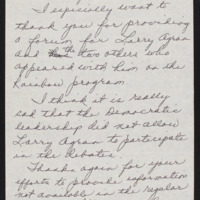 I especially want to
thank you for providing
a forum for Larry Agran
and the two others who
appeared with him on the
Rainbow program
I think it is really
sad that the Democratic
leadership did not allow
Larry Agran to participate
in the debates.
Thanks again for your
efforts to provide information
not available in the regular